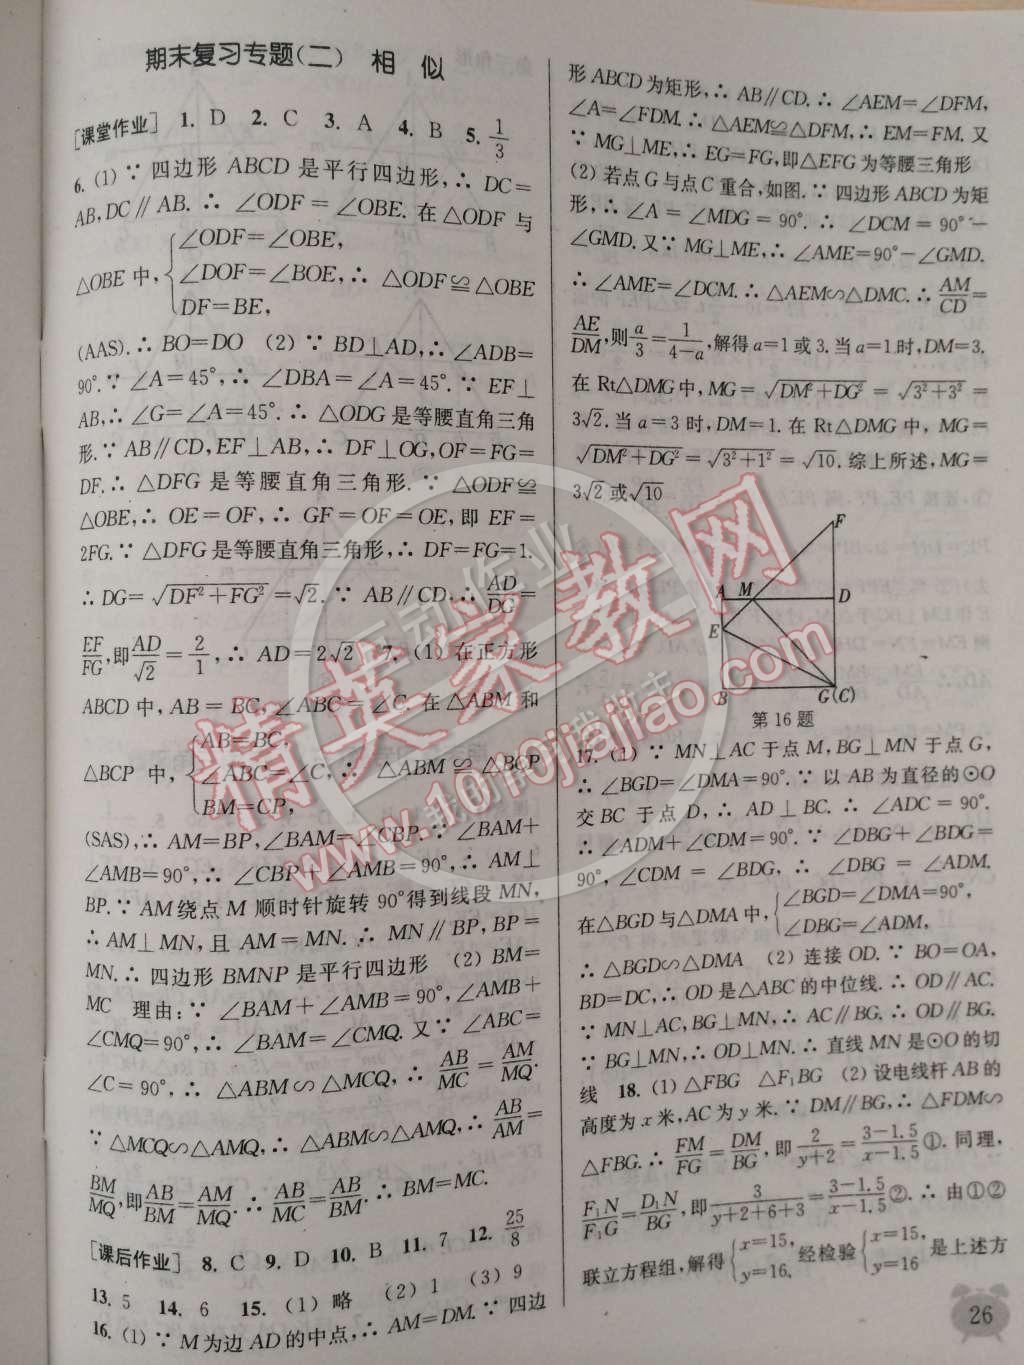 期末复习专题(二) 相 似
[课堂作业] 1. D 2. C 3. A 4. B 5. 1/3
6. (1) ∵ 四边形 ABCD 是平行四边形,∴ DC=
AB,DC∥AB. ∴ ∠ODF=∠OBE. 在△ODF 与
△OBE 中,{∠ODF=∠OBE, ∠DOF=∠BOE, DF=BE, ∴ △ODF≌△OBE
(AAS).∴ BO=DO (2) ∵ BD⊥AD,∴ ∠ADB=
90°.∵ ∠A=45°,∴ ∠DBA=∠A=45°. ∵ EF⊥
AB,∴ ∠G=∠A=45°.∴ △ODG 是等腰直角三角
形.∵ AB∥CD,EF⊥AB,∴ DF⊥OG,OF=FG=
DF.∴ △DFG 是等腰直角三角形. ∵ △ODF≌
△OBE,∴ OE=OF,∴ GF=OF=OE,即 EF=
2FG.∵ △DFG 是等腰直角三角形,∴ DF=FG=1.
∴ DG=√(DF²+FG²)=√2. ∵ AB∥CD,∴ AD/DG=
EF/FG,即AD/√2=2/1,∴ AD=2√2 7. (1) 在正方形
ABCD 中,AB=BC,∠ABC=∠C. 在△ABM 和
△BCP 中,{AB=BC, ∠ABC=∠C, BM=CP, ∴ △ABM≌△BCP
(SAS).∴ AM=BP,∠BAM=∠CBP.∵ ∠BAM+
∠AMB=90°,∴ ∠CBP+∠AMB=90°,∴ AM⊥
BP.∵ AM绕点 M 顺时针旋转 90°得到线段 MN,
∴ AM⊥MN,且 AM=MN.∴ MN∥BP,BP=
MN.∴ 四边形 BMNP 是平行四边形 (2) BM=
MC 理由:∵ ∠BAM+∠AMB=90°,∠AMB+
∠CMQ=90°,∴ ∠BAM=∠CMQ. 又∵ ∠ABC=
∠C=90°,∴ △ABM∽△MCQ,∴ AB/MC=AM/MQ.
∵ △MCQ∽△AMQ,∴ △ABM∽△AMQ,∴ AB/AM=
BM/MQ,即AB/BM=AM/MQ. ∴ AB/MC=AB/BM.∴ BM=MC.
[课后作业] 8. C 9. D 10. B 11. 7 12. 25/8
13. 5 14. 6 15. (1) 略 (2) 1 (3) 9
16. (1) ∵ M为边 AD 的中点,∴ AM=DM. ∵ 四边
形 ABCD 为矩形,∴ AB∥CD.∴ ∠AEM=∠DFM,
∠A=∠FDM.∴ △AEM≌△DFM,∴ EM=FM. 又
∵ MG⊥ME,∴ EG=FG,即△EFG 为等腰三角形
(2) 若点 G 与点 C 重合,如图.∵ 四边形 ABCD 为矩
形,∴ ∠A=∠MDG=90°. ∴ ∠DCM=90°-
∠GMD. 又∵ MG⊥ME,∴ ∠AME=90°-∠GMD.
∴ ∠AME=∠DCM.∴ △AEM∽△DMC.∴ AM/CD=
AE/DM,则a/3=1/(4-a),解得 a=1 或 3. 当 a=1 时,DM=3.
在 Rt△DMG 中,MG=√(DM²+DG²)=√(3²+3²)=
3√2. 当 a=3 时,DM=1. 在 Rt△DMG 中,MG=
√(DM²+DG²)=√(3²+1²)=√10. 综上所述,MG=
3√2 或√10
F
A M D
E
B G(C)
第 16 题
17. (1) ∵ MN⊥AC 于点 M,BG⊥MN 于点 G,
∴ ∠BGD=∠DMA=90°. ∵ 以 AB 为直径的⊙O
交 BC 于点 D,∴ AD⊥BC. ∴ ∠ADC=90°.
∴ ∠ADM+∠CDM=90°. ∵ ∠DBG+∠BDG=
90°,∠CDM=∠BDG,∴ ∠DBG=∠ADM.
在△BGD 与△DMA 中,{∠BGD=∠DMA=90°, ∠DBG=∠ADM,
∴ △BGD∽△DMA (2) 连接 OD. ∵ BO=OA,
BD=DC,∴ OD 是△ABC 的中位线.∴ OD∥AC.
∵ MN⊥AC,BG⊥MN,∴ AC∥BG.∴ OD∥BG.
∵ BG⊥MN,∴ OD⊥MN.∴ 直线 MN 是⊙O 的切
线 18. (1) △FBG △F₁BG (2) 设电线杆 AB 的
高度为 x 米,AC 为 y 米.∵ DM∥BG,∴ △FDM∽
△FBG.∴ FM/FG=DM/BG,即2/(y+2)=(3-1.5)/(x-1.5)①. 同理,
F₁N/F₁G=D₁N/BG,即3/(y+2+6+3)=(3-1.5)/(x-1.5)②. ∴ 由①②
联立方程组,解得{x=15, y=16. 经检验{x=15, y=16 是上述方
26
精英家教网
www.1010jiajiao.com